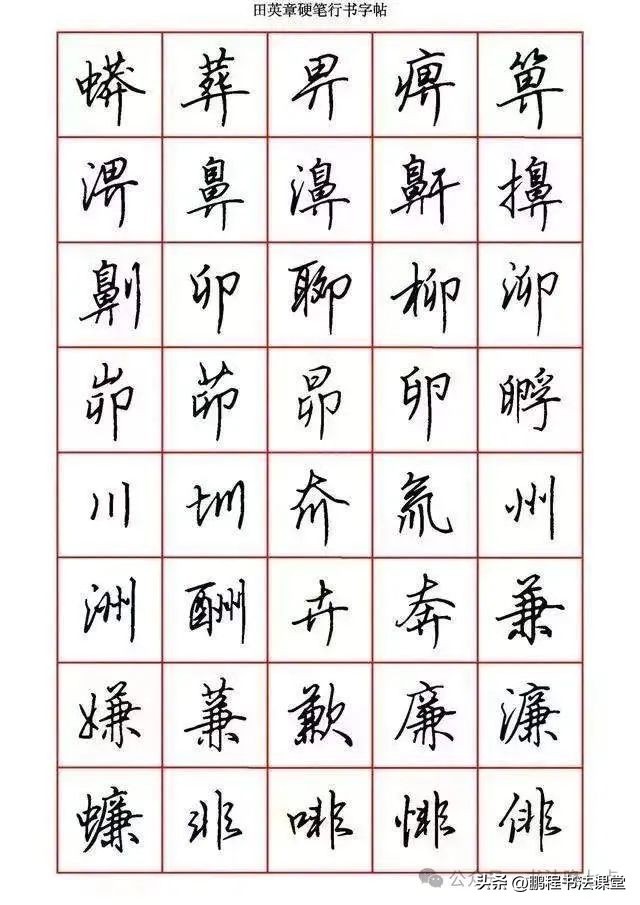 田英章硬笔行书字帖
蟒 葬 畀 痹 箅
淠 鼻 濞 鼾 擤
劓 卯 聊 柳 泖
峁 茆 昴 卵 孵
川 圳 夼 氚 州
洲 酬 卉 奔 兼
嫌 蒹 歉 廉 濂
蠊 非 啡 悱 俳
头条 @鹏程书法课堂